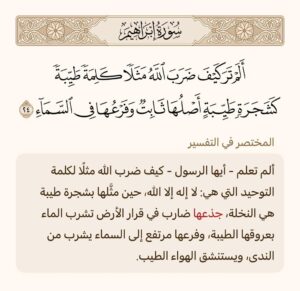 سُورَةُ إِبْرَاهِيمَ
أَلَمْ تَرَ كَيْفَ ضَرَبَ ٱللَّهُ مَثَلًا كَلِمَةً طَيِّبَةً
كَشَجَرَةٍ طَيِّبَةٍ أَصْلُهَا ثَابِتٌ وَفَرْعُهَا فِي ٱلسَّمَآءِ ٢٤
المختصر في التفسير
ألم تعلم - أيها الرسول - كيف ضرب الله مثلًا لكلمة
التوحيد التي هي: لا إله إلا الله، حين مثَّلها بشجرة طيبة
هي النخلة، جذعها ضارب في قرار الأرض تشرب الماء
بعروقها الطيبة، وفرعها مرتفع إلى السماء يشرب من
الندى، ويستنشق الهواء الطيب.